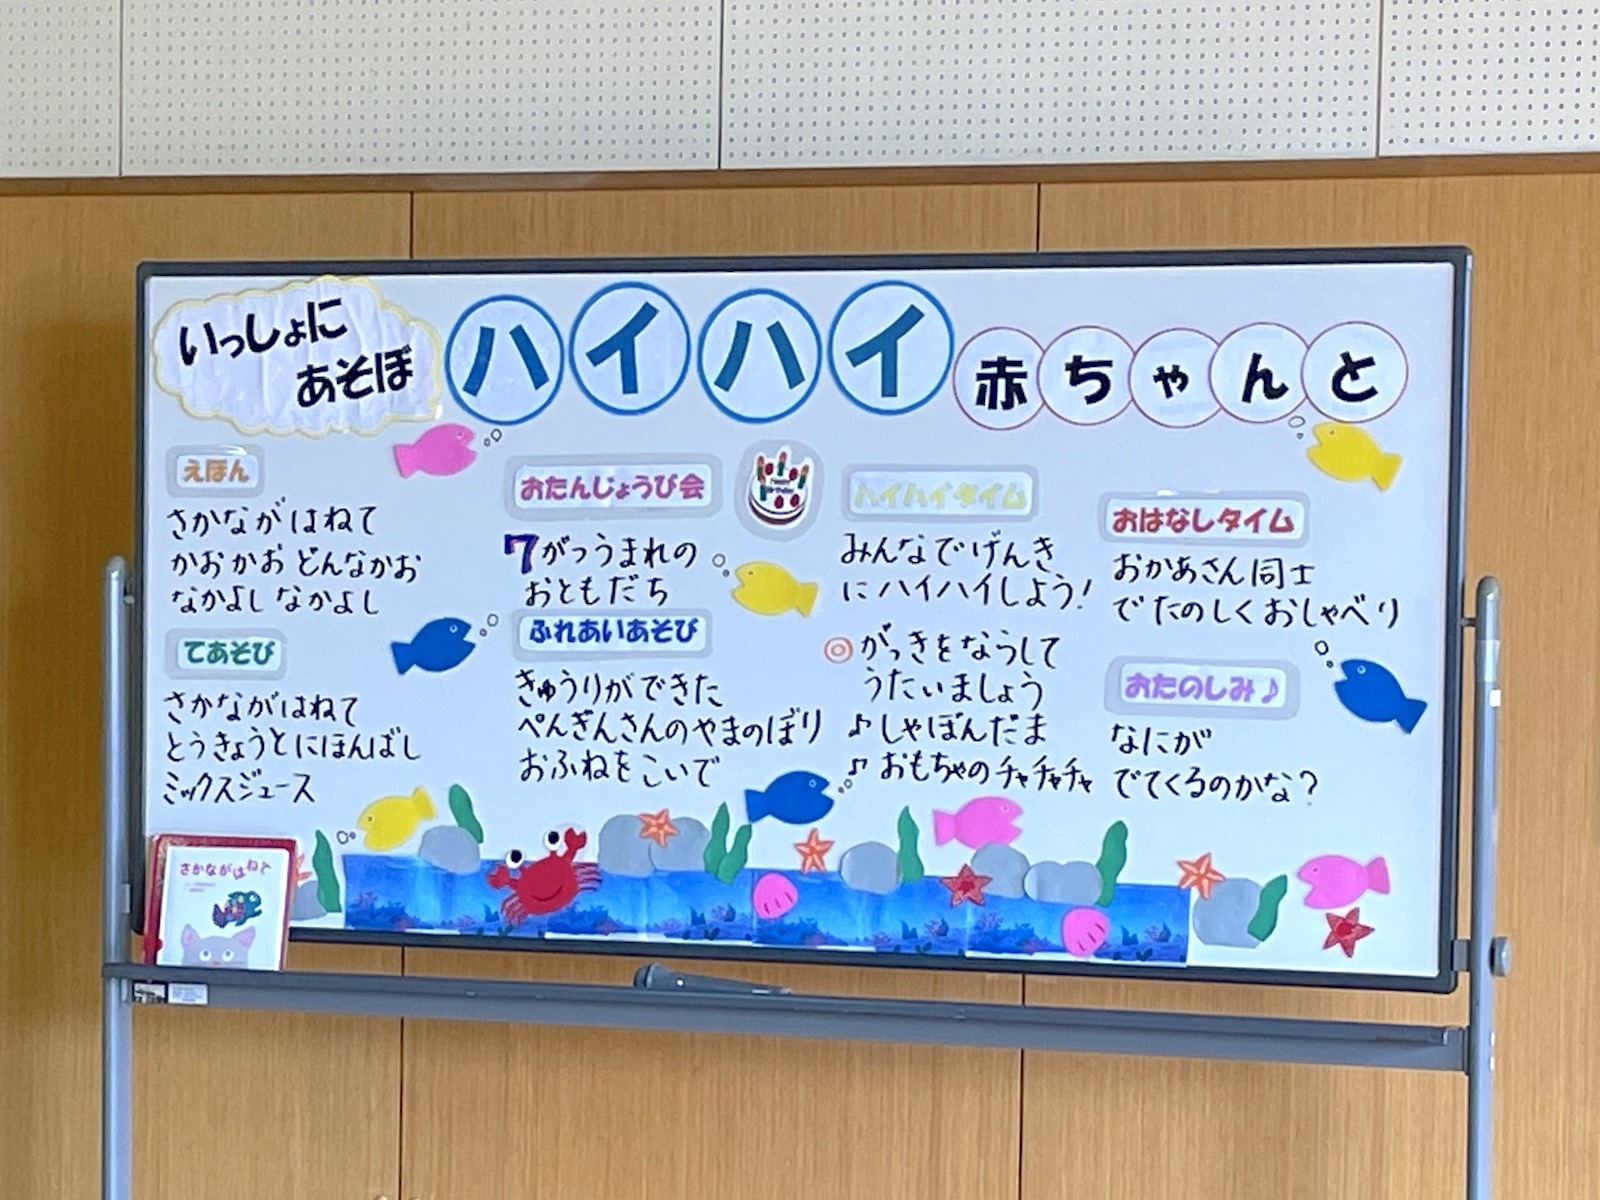 いっしょに
あそぼ
ハイハイ赤ちゃんと
えほん
さかながはねて
かおかお どんなかお
なかよし なかよし
てあそび
さかながはねて
とうきょうとにほんばし
ミックスジュース
さかながはねて
おたんじょうび会
7がつうまれの
おともだち
ふれあいあそび
きゅうりができた
ぺんぎんさんのやまのぼり
おふねをこいで
ハイハイタイム
みんなでげんき
にハイハイしよう!
◎がっきをならして
うたいましょう
♪しゃぼんだま
♪おもちゃのチャチャチャ
おはなしタイム
おかあさん同士
でたのしくおしゃべり
おたのしみ♪
なにが
でてくるのかな?